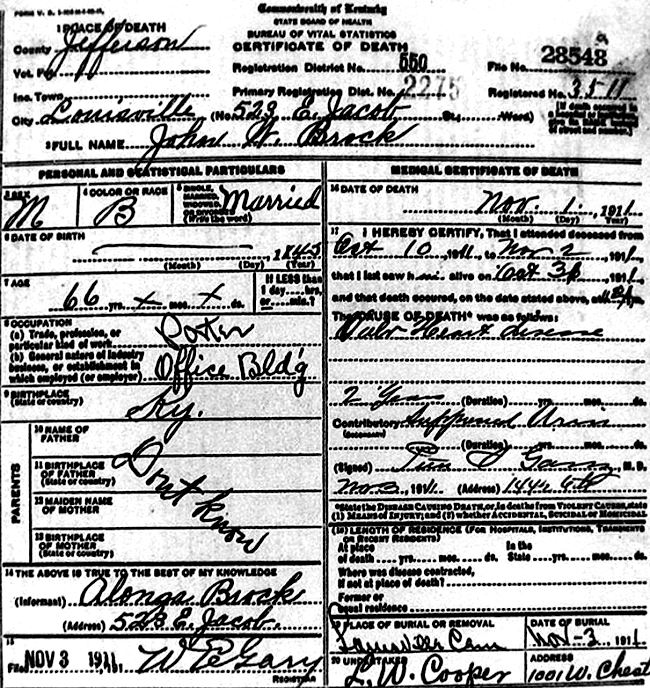 FORM V. S.
Commonwealth of Kentucky
STATE BOARD OF HEALTH
BUREAU OF VITAL STATISTICS
CERTIFICATE OF DEATH
1 PLACE OF DEATH
County Jefferson
Vot. Pct.
Inc. Town
City Louisville
Registration District No. 550
File No. 28548
Primary Registration Dist. No. 2275
Registered No. 3511
(No. 529 E. Jacob St., Ward)
2 FULL NAME John W. Brock
PERSONAL AND STATISTICAL PARTICULARS
3 SEX M
4 COLOR OR RACE B
5 SINGLE, MARRIED, WIDOWED, OR DIVORCED (Write the word) Married
6 DATE OF BIRTH 1845
(Month) (Day) (Year)
7 AGE
66 yrs. x mos. x ds.
If LESS than 1 day, hrs. or min.?
8 OCCUPATION
(a) Trade, profession, or particular kind of work Porter
(b) General nature of industry, business, or establishment in which employed (or employer) Office Bld'g
9 BIRTHPLACE (State or country) Ky.
PARENTS
10 NAME OF FATHER
11 BIRTHPLACE OF FATHER (State or country)
12 MAIDEN NAME OF MOTHER
13 BIRTHPLACE OF MOTHER (State or country)
Dont Know
14 THE ABOVE IS TRUE TO THE BEST OF MY KNOWLEDGE
(Informant) Brock
(Address) 529 E. Jacob.
15
Filed NOV 3 1911, REGISTRAR
MEDICAL CERTIFICATE OF DEATH
16 DATE OF DEATH
Nov. 1, 1911
(Month) (Day) (Year)
17 I HEREBY CERTIFY, That I attended deceased from
Oct 10, 1911, to Nov 2, 1911,
that I last saw h alive on Oct 31, 1911,
and that death occured, on the date stated above, at
The CAUSE OF DEATH* was as follows:
Heart disease
2 Years (Duration) yrs. mos. ds.
Contributory
(Duration) yrs. mos. ds.
(Signed) M. D.
Nov 3, 1911 (Address) 1444
*State the DISEASE CAUSING DEATH, or, in deaths from VIOLENT CAUSES, state (1) MEANS OF INJURY; and (2) whether ACCIDENTAL, SUICIDAL or HOMICIDAL.
18 LENGTH OF RESIDENCE (FOR HOSPITALS, INSTITUTIONS, TRANSIENTS OR RECENT RESIDENTS)
At place of death yrs. mos. ds. In the State yrs. mos. ds.
Where was disease contracted, if not at place of death?
Former or usual residence
19 PLACE OF BURIAL OR REMOVAL
DATE OF BURIAL
Nov-3 1911
20 UNDERTAKER
L. W. Cooper
ADDRESS
1001 W. Chest